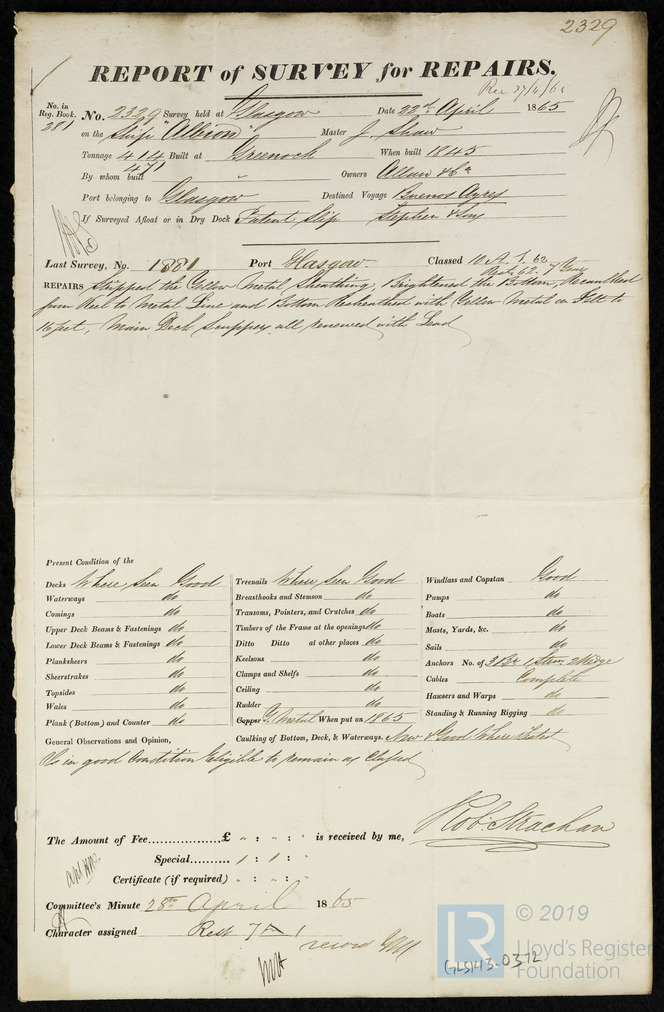 2329
REPORT of SURVEY for REPAIRS.
Rec 27/4/65
No. in Reg. Book. 281
No. 2329 Survey held at Glasgow Date 22nd April 1865
on the Ship "Albion" Master J. Shaw
Tonnage 414 471 Built at Greenock When built 1845
By whom built " Owners Allan & Co
Port belonging to Glasgow Destined Voyage Buenos Ayres
If Surveyed Afloat or in Dry Dock Patent Slip Stephen & Sons
Last Survey, No. 1881 Port Glasgow. Classed 10 A. 1. 62
62. 7 Years
REPAIRS Stripped the Yellow Metal Sheathing, Brightened the Bottom, Recaulked
from Keel to Metal Line and Bottom Resheathed with Yellow Metal on Felt to
16 feet, Main Deck Scuppers all renewed with Lead
Present Condition of the
Decks Where Seen Good Treenails Where Seen Good Windlass and Capstan Good
Waterways do Breasthooks and Stemson do Pumps do
Comings do Transoms, Pointers, and Crutches do Boats do
Upper Deck Beams & Fastenings do Timbers of the Frame at the openings do Masts, Yards, &c. do
Lower Deck Beams & Fastenings do Ditto Ditto at other places do Sails do
Planksheers do Keelsons do Anchors No. of 3 Br 1 Strm 2 Kedge
Sheerstrakes do Clamps and Shelfs do Cables Complete
Topsides do Ceiling do Hawsers and Warps do
Wales do Rudder do Standing & Running Rigging do
Plank (Bottom) and Counter do Copper Y. Metal When put on 1865
General Observations and Opinion, Caulking of Bottom, Deck, & Waterways. New & Good Where Tested
Is in good Condition Eligible to remain as Classed
The Amount of Fee..................£ " : " : " is received by me, Rob. Strachan
Special.......... 1 : 1 : "
Certificate (if required) " : " : "
Committee's Minute 28th April 1865
Character assigned Rest 7 A 1
record YM
© 2019
LR
Lloyd's Register
Foundation
GLS143-0372